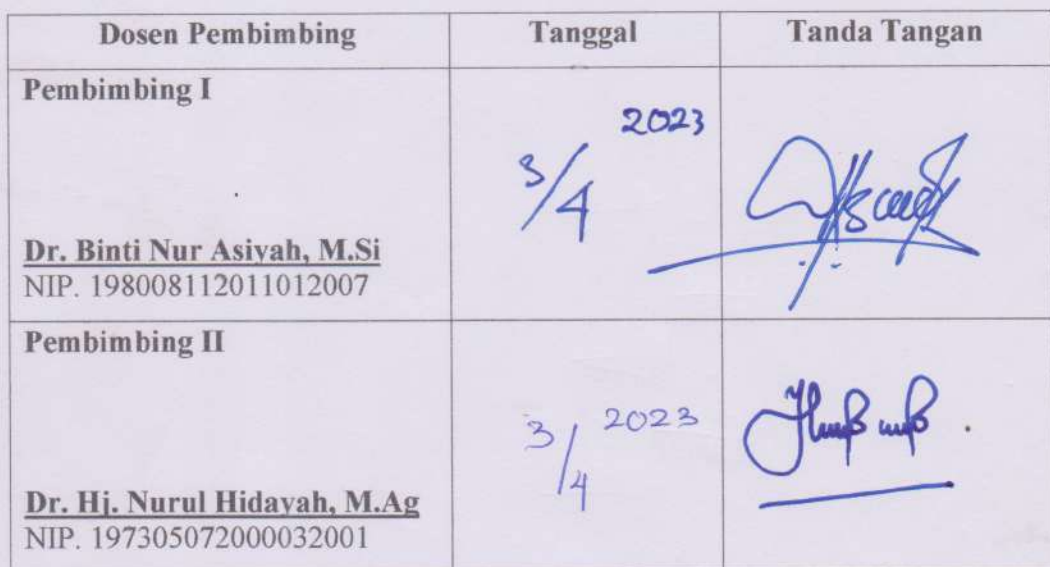 Dosen Pembimbing Tanggal Tanda Tangan
Pembimbing I
3/4 2023
Dr. Binti Nur Asiyah, M.Si
NIP. 198008112011012007
Pembimbing II
3/4 2023
Dr. Hj. Nurul Hidayah, M.Ag
NIP. 197305072000032001